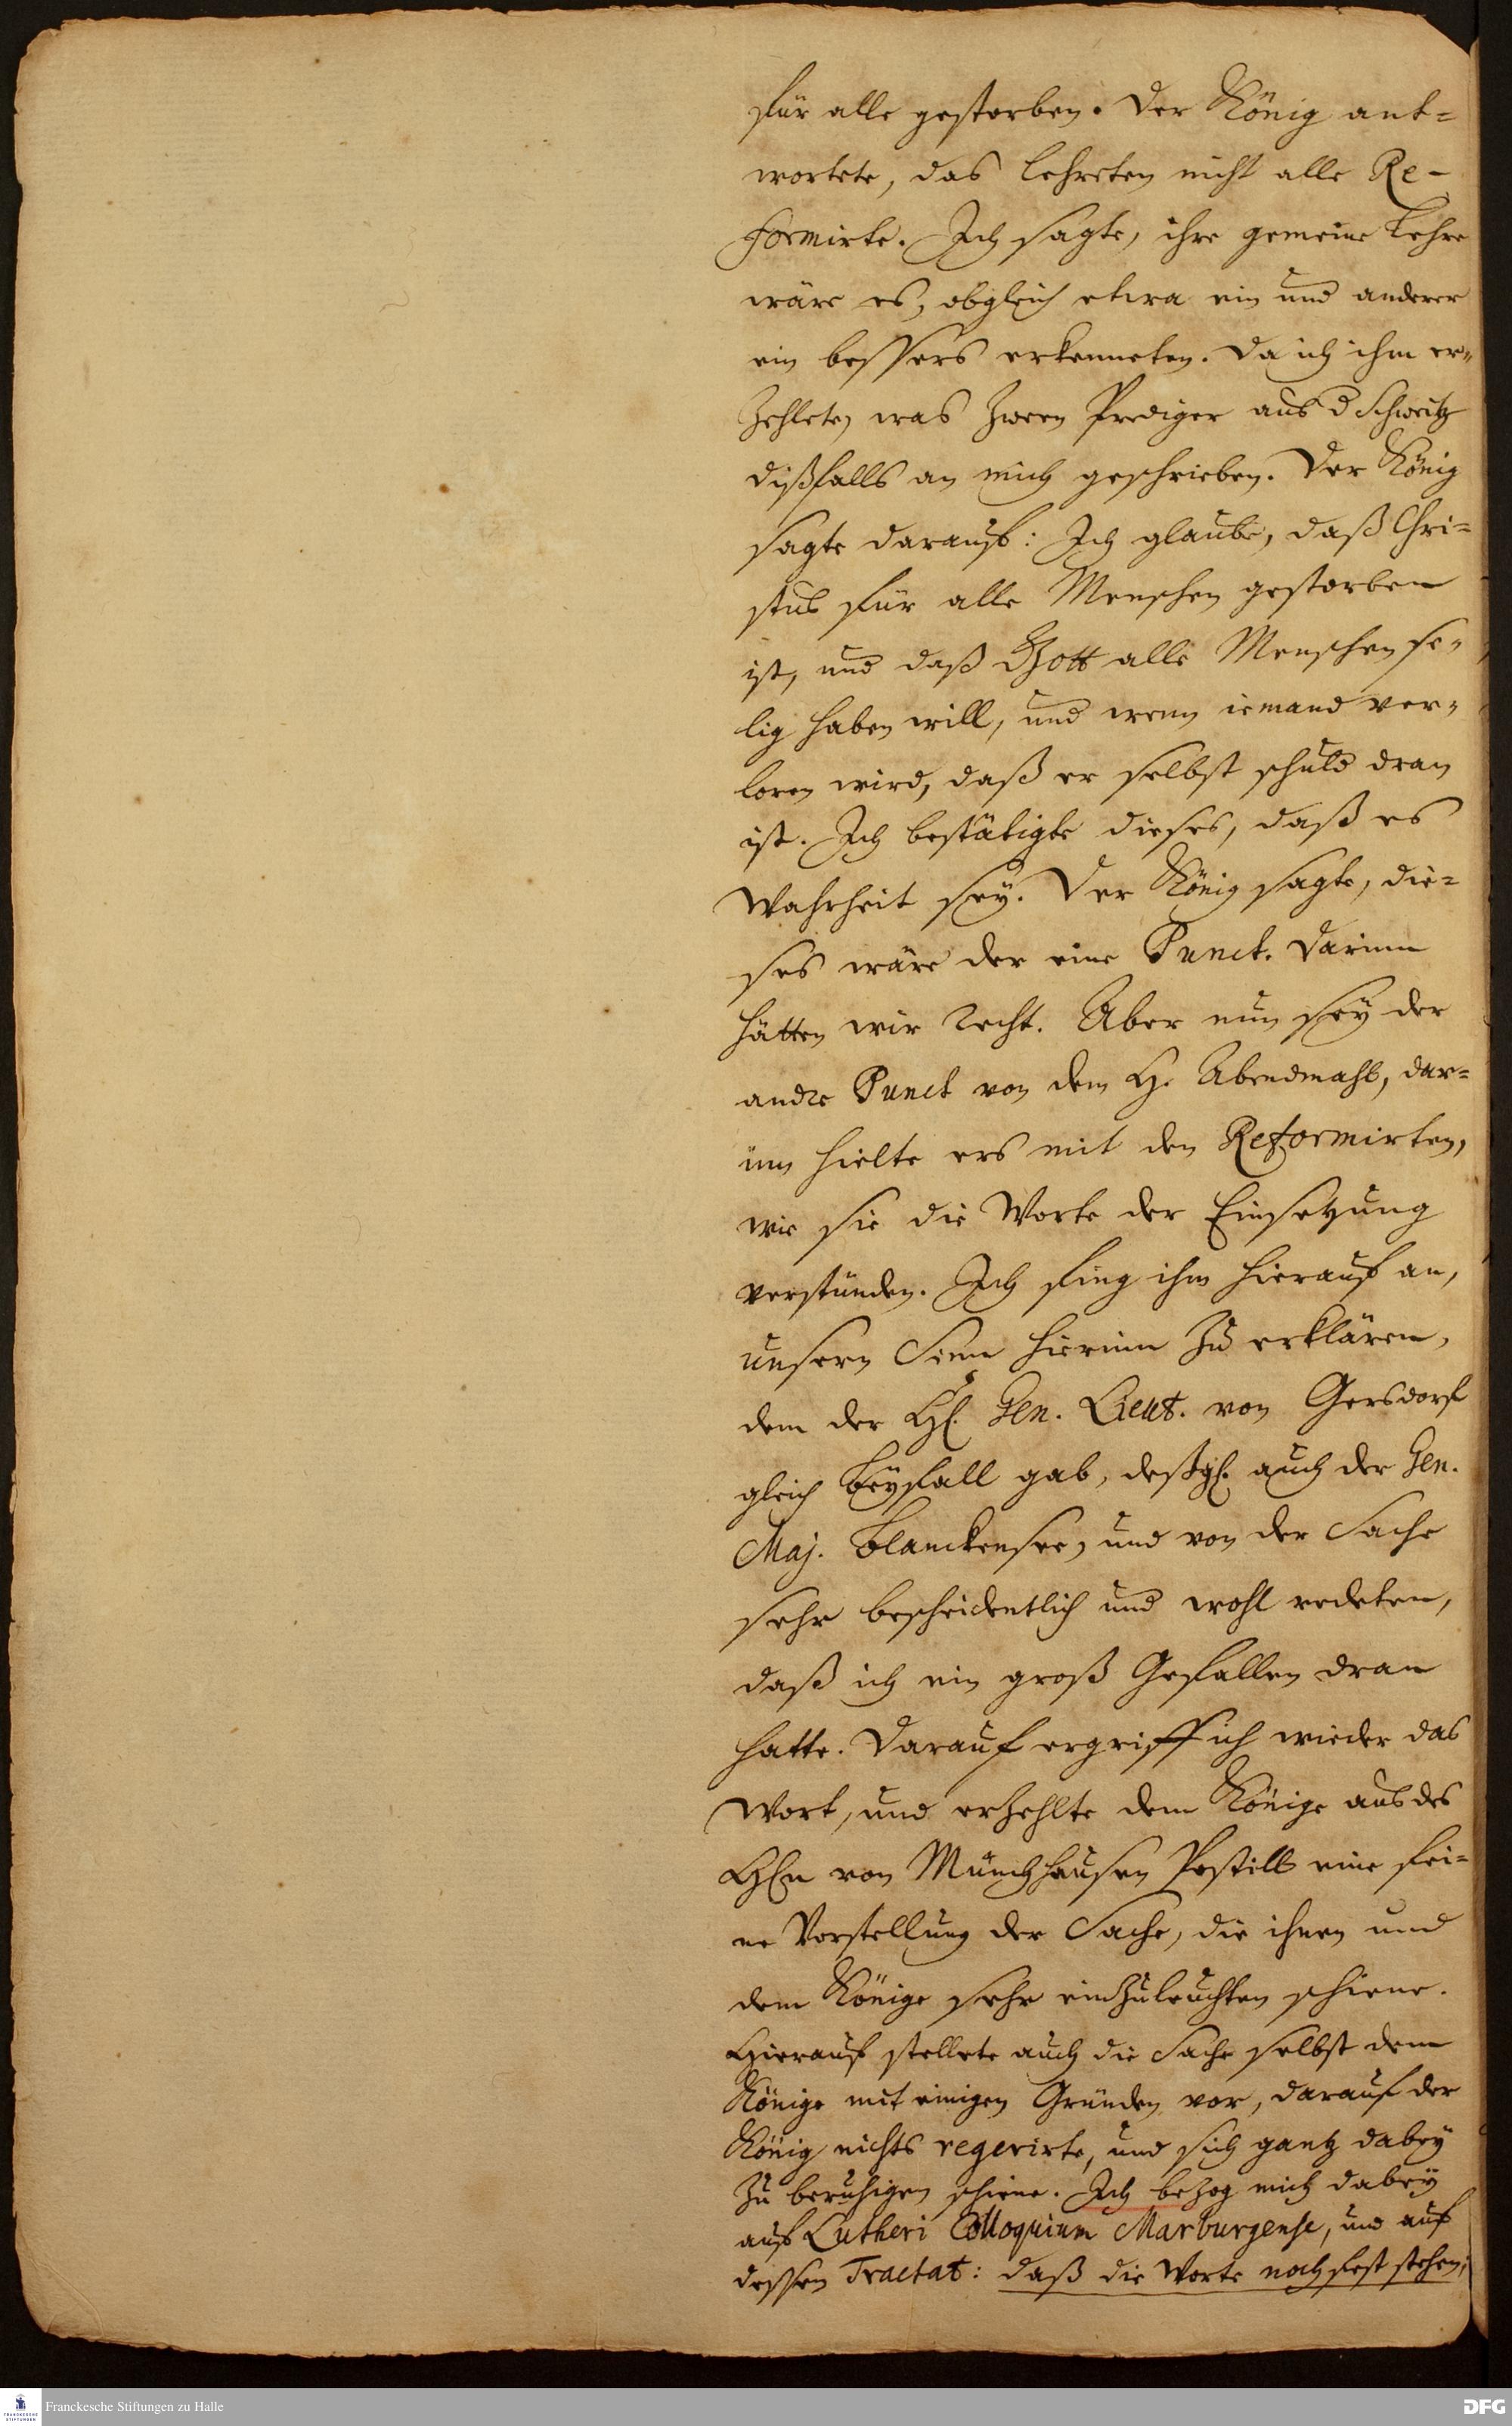 für alle gestorben. Der König ant=
wortete, das lehreten nicht alle Re-
formirte. Ich sagte, ihre gemeine Lehre
wäre es, obgleich etwa ein und anderer
ein bessers erkenneten. Da ich ihm er=
zehlete, was zween Prediger aus d Schweitz
dißfalls an mich geschrieben. Der König
sagte darauf: Ich glaube, daß Chri=
stus für alle Menschen gestorben
ist, und daß Gott alle Menschen se=
lig haben will, und wenn iemand ver=
loren wird, daß er selbst schuld dran
ist. Ich bestätigte dieses, daß es
Wahrheit sey. Der König sagte, die=
ses wäre der eine Punct. Darinn
hätten wir Recht. Aber nun sey der
andre Punct von dem H. Abendmahl, dar=
inn hielte ers mit den Reformirten,
wie sie die Worte der Einsetzung
verstünden. Ich fing ihm hierauf an,
unsern Sinn hierinn zu erklären,
dem der H. Gen. Lieut. von Gersdorf
gleich Beyfall gab, deßgl. auch der Gen.
Maj. Blanckensee, und von der Sache
sehr bescheidentlich und wohl redeten,
daß ich ein groß Gefallen dran
hatte. Darauf ergriff ich wieder das
Wort, und erzehlte dem Könige aus des
HEn von Münchhausen Postill eine fei=
ne Vorstellung der Sache, die ihnen und
dem Könige sehr einzuleuchten schiene.
Hierauf stellete auch die Sache selbst dem
Könige mit einigen Gründen vor, darauf der
König nichts regerirte, und sich gantz dabey
zu beruhigen schiene. Ich bezog mich dabey
auf Lutheri Colloquium Marburgense, und auf
dessen Tractat: daß die Worte noch fest stehen;
Franckesche Stiftungen zu Halle
FRANCKESCHE STIFTUNGEN
DFG